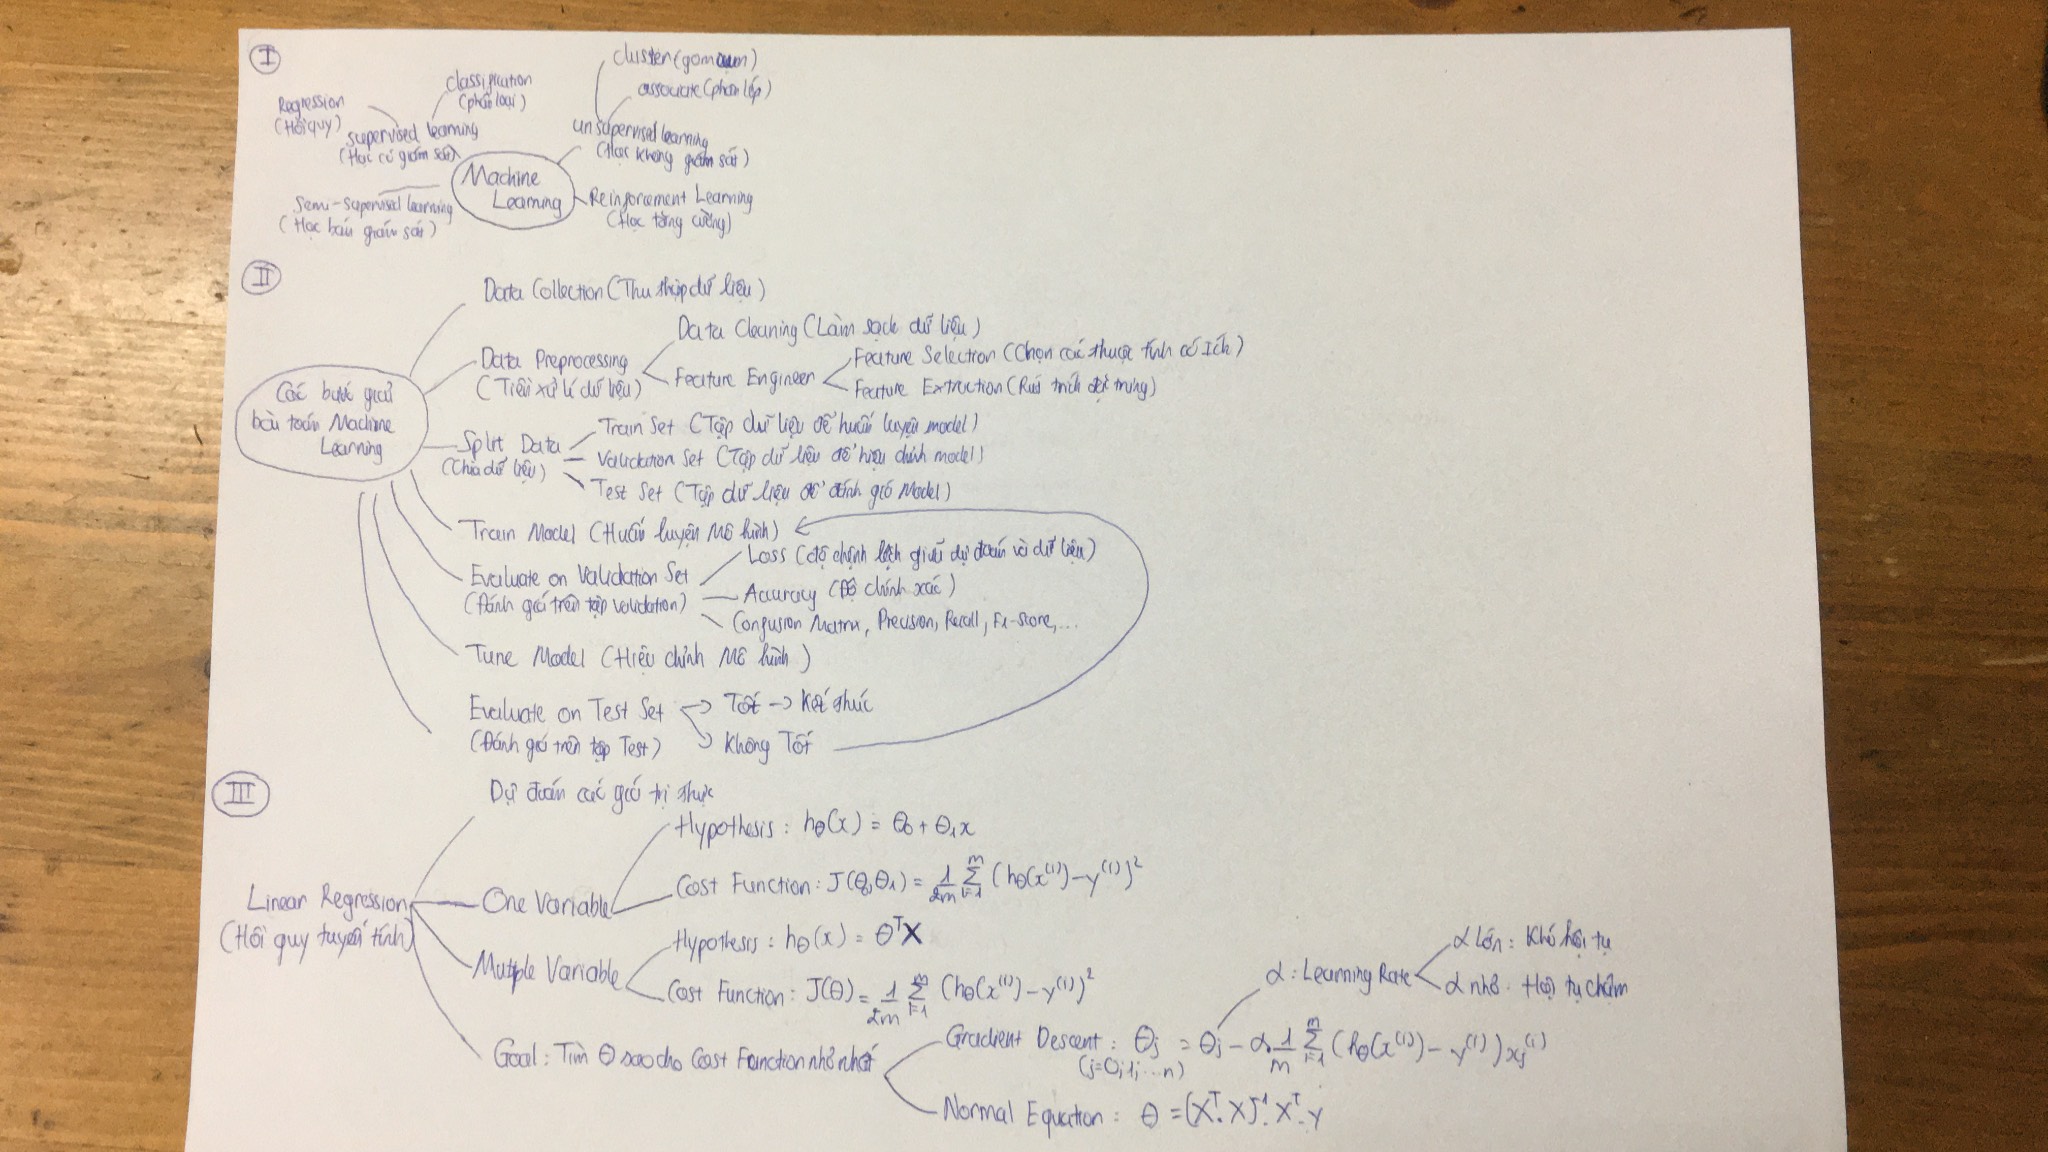 I
cluster (gom cụm)
associate (phân lớp)
classification
(phân loại)
Regression
(Hồi quy)
supervised learning
(Học có giám sát)
unsupervised learning
(Học không giám sát)
Machine
Learning
Semi-supervised learning
(Học bán giám sát)
Reinforcement Learning
(Học tăng cường)
II
Các bước giải
bài toán Machine
Learning
Data Collection (Thu thập dữ liệu)
Data Preprocessing
(Tiền xử lí dữ liệu)
Data Cleaning (Làm sạch dữ liệu)
Feature Engineer
Feature Selection (Chọn các thuộc tính có ích)
Feature Extraction (Rút trích đặc trưng)
Split Data
(Chia dữ liệu)
Train Set (Tập dữ liệu để huấn luyện model)
Validation Set (Tập dữ liệu để hiệu chỉnh model)
Test Set (Tập dữ liệu để đánh giá Model)
Train Model (Huấn luyện Mô hình)
Evaluate on Validation Set
(Đánh giá trên tập validation)
Loss (độ chênh lệch giữa dự đoán và dữ liệu)
Accuracy (Độ chính xác)
Confusion Matrix, Precision, Recall, F1-score,...
Tune Model (Hiệu chỉnh Mô hình)
Evaluate on Test Set
(Đánh giá trên tập Test)
→ Tốt → Kết thúc
→ Không Tốt
III
Linear Regression
(Hồi quy tuyến tính)
Dự đoán các giá trị thực
One Variable
Hypothesis: hθ(x) = θ0 + θ1x
Cost Function: J(θ0,θ1) = 1/2m Σ(i=1→m) (hθ(x⁽ⁱ⁾) - y⁽ⁱ⁾)²
Mutiple Variable
Hypothesis: hθ(x) = θᵀX
Cost Function: J(θ) = 1/2m Σ(i=1→m) (hθ(x⁽ⁱ⁾) - y⁽ⁱ⁾)²
Goal: Tìm θ sao cho Cost Function nhỏ nhất
Gradient Descent: θj = θj - α.1/m Σ(i=1→m) (hθ(x⁽ⁱ⁾) - y⁽ⁱ⁾) xj⁽ⁱ⁾
(j=0;1;...n)
α: Learning Rate
α Lớn: Khó hội tụ
α nhỏ: Hội tụ chậm
Normal Equation: θ = (Xᵀ.X)⁻¹.Xᵀ.y